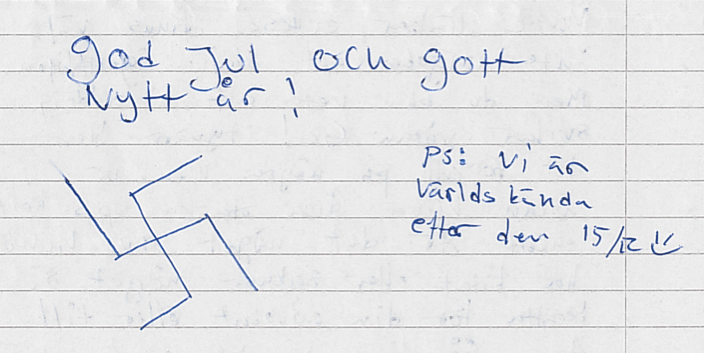 god Jul och gott
Nytt år!
PS: Vi är
världs kända
efter den 15/12 :)